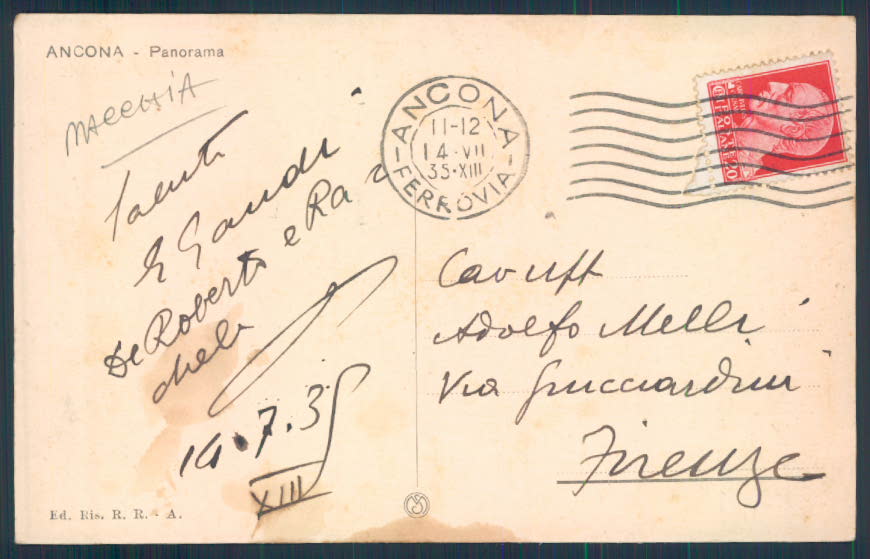 ANCONA - Panorama
MACCHIA
Saluti
De Roberto e Ra
chele
14.7.35
XIII
ANCONA
11-12
14·VII
35·XIII
FERROVIA
20
Cav Uff
Adolfo Melli
Via Guicciardini
Firenze
Ed. Ris. R. R. - A.